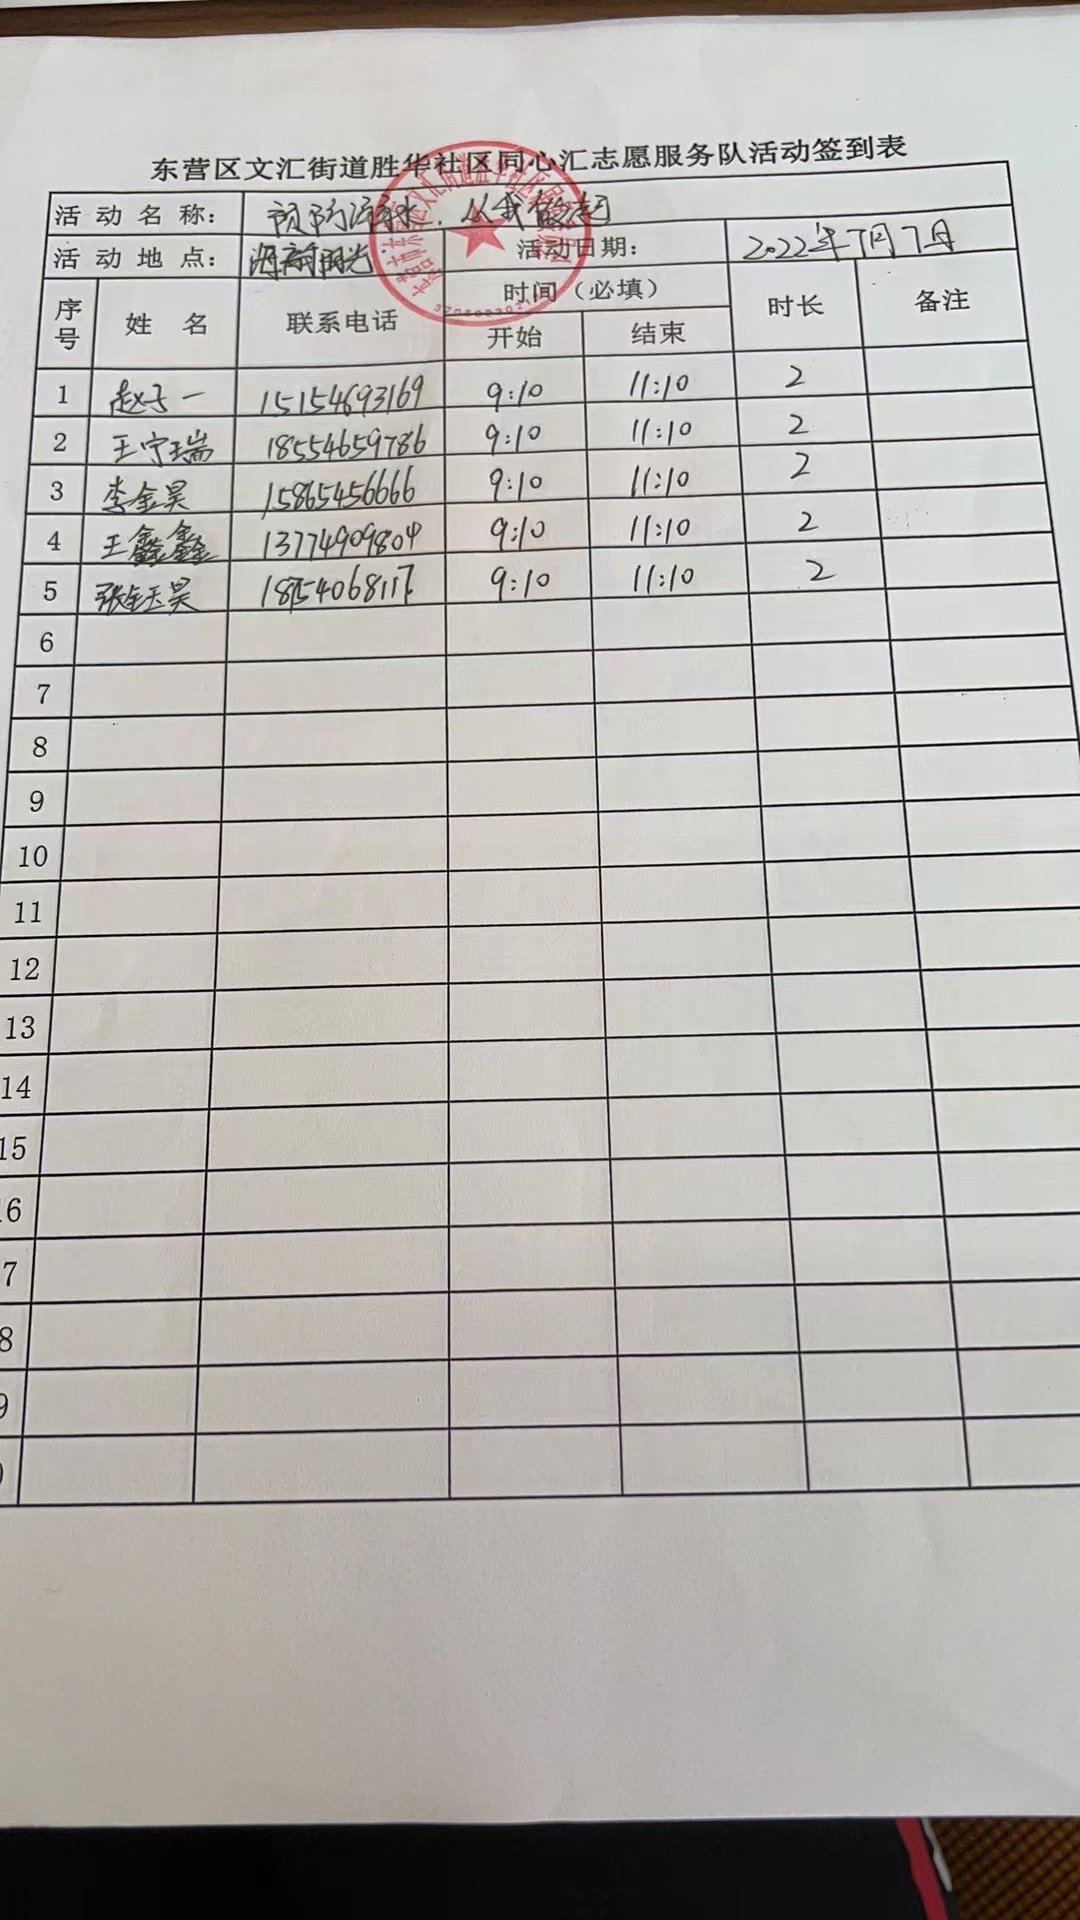 东营区文汇街道胜华社区同心汇志愿服务队活动签到表
活动名称： 预防溺水，从我做起
活动地点： 海南阳光 活动日期： 2022年7月7日
序号 姓名 联系电话 时间（必填） 时长 备注
开始 结束
1 赵子一 15154693169 9:10 11:10 2
2 王宁瑞 18554659786 9:10 11:10 2
3 李金昊 15865456666 9:10 11:10 2
4 王鑫鑫 13774909804 9:10 11:10 2
5 张钰昊 18754068117 9:10 11:10 2
6
7
8
9
10
11
12
13
14
15
6
7
8
9